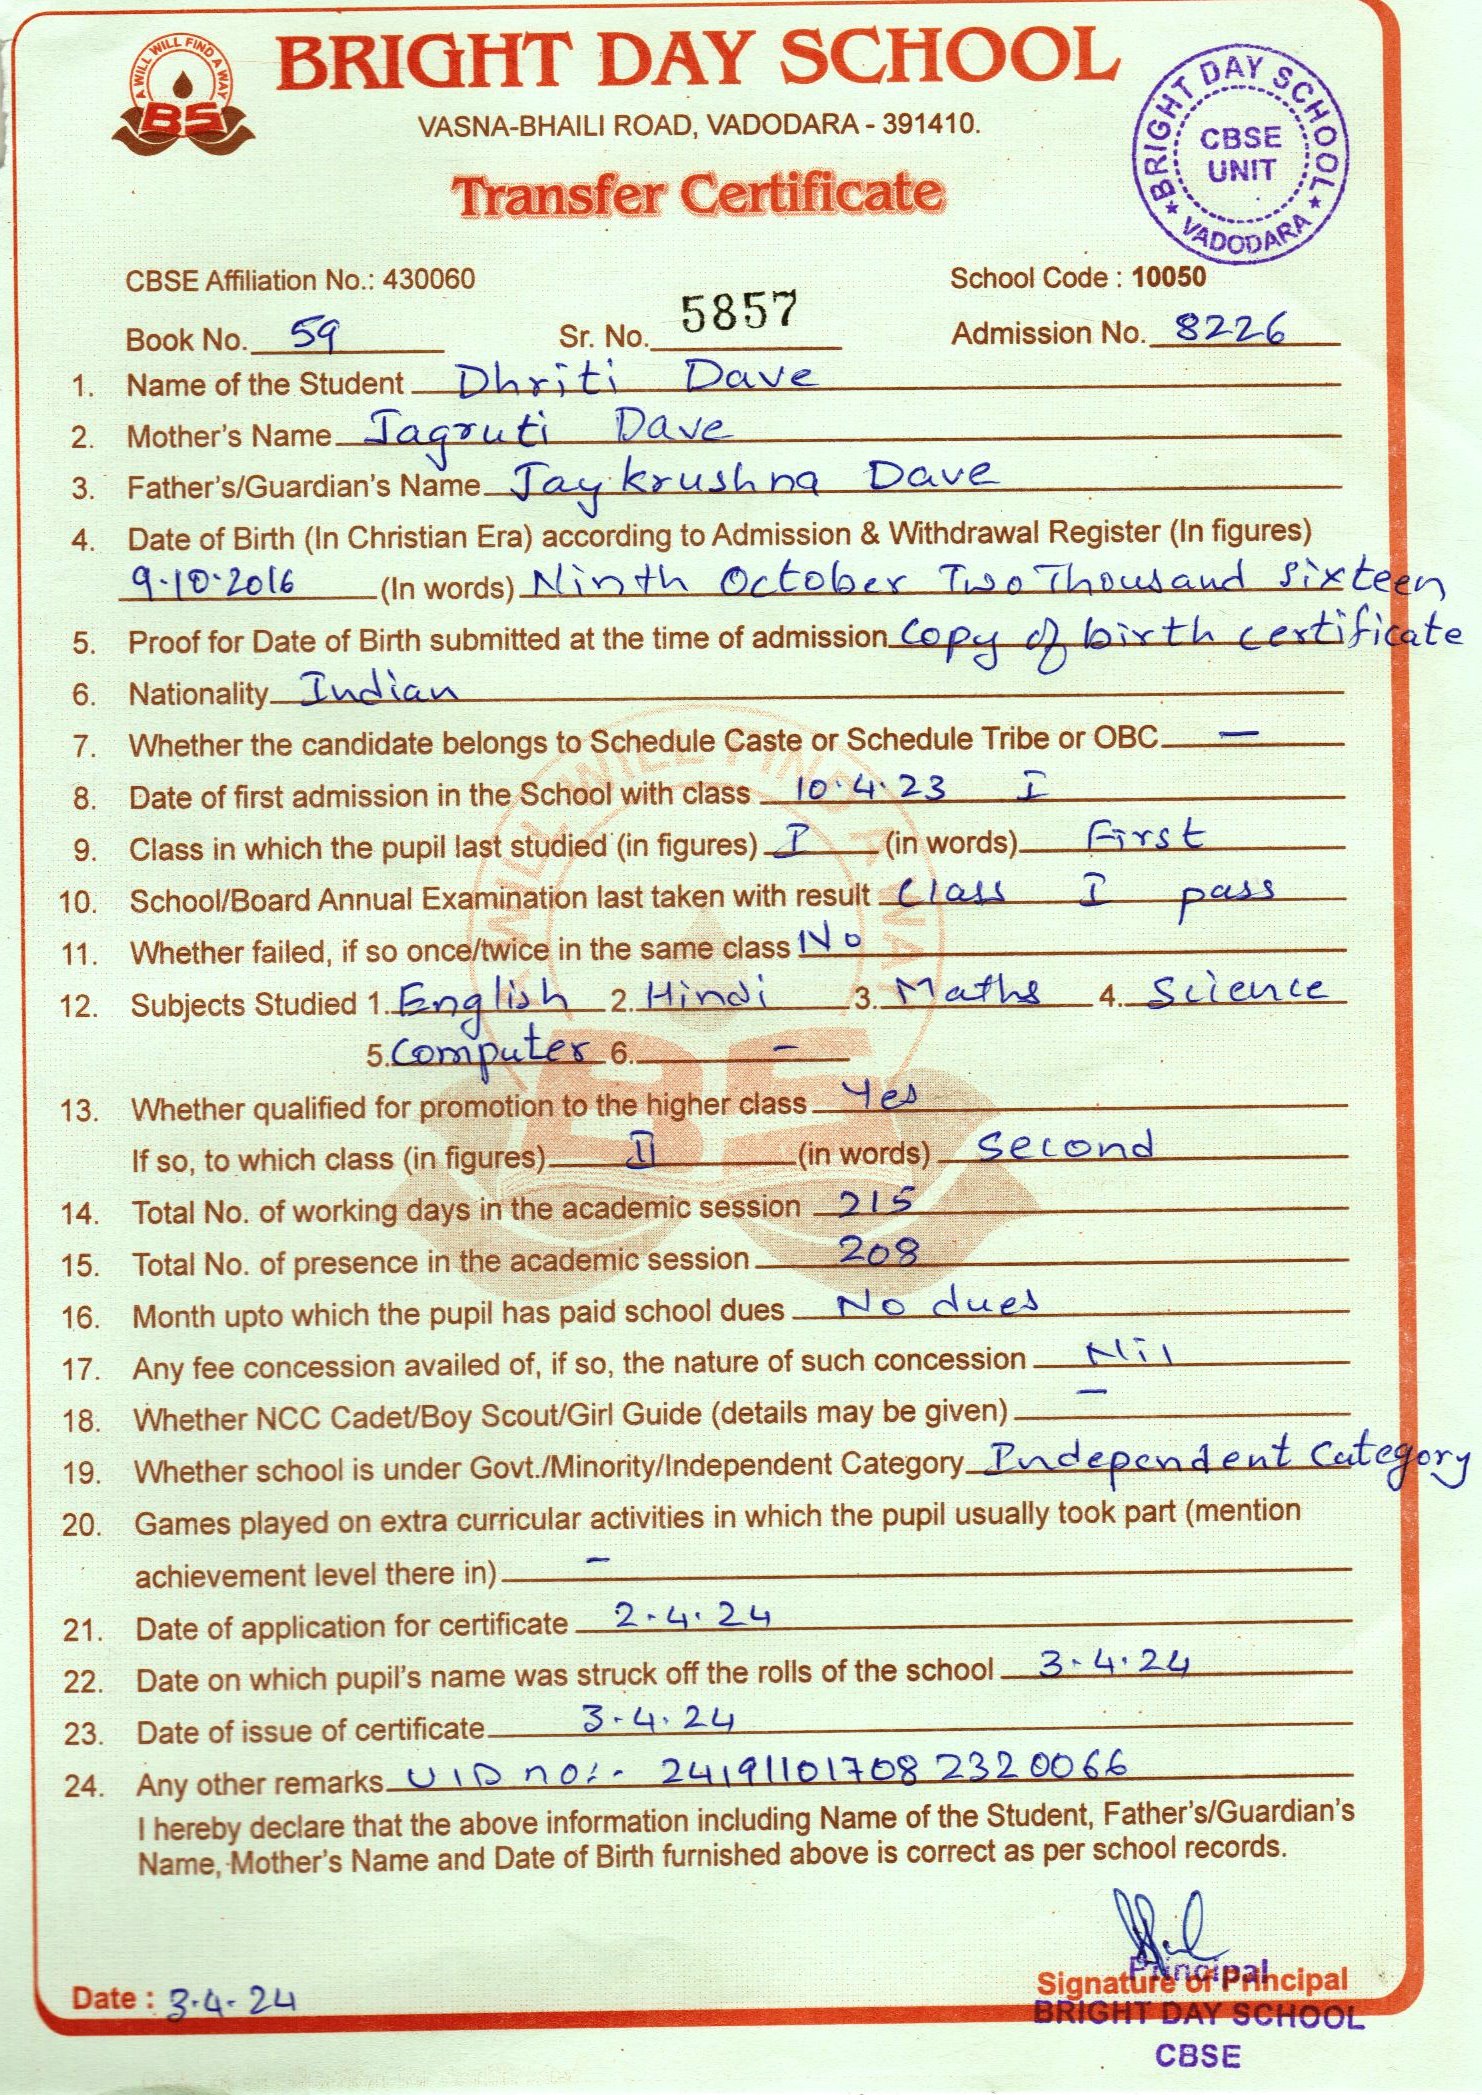 A WILL WILL FIND A WAY
BS
BRIGHT DAY SCHOOL
VASNA-BHAILI ROAD, VADODARA - 391410.
Transfer Certificate
BRIGHT DAY SCHOOL
CBSE
UNIT
VADODARA
CBSE Affiliation No.: 430060 School Code : 10050
Book No. 59 Sr. No. 5857 Admission No. 8226
1. Name of the Student Dhriti Dave
2. Mother's Name Jagruti Dave
3. Father's/Guardian's Name Jaykrushna Dave
4. Date of Birth (In Christian Era) according to Admission & Withdrawal Register (In figures)
9.10.2016 (In words) Ninth October Two Thousand Sixteen
5. Proof for Date of Birth submitted at the time of admission Copy of birth certificate
6. Nationality Indian
7. Whether the candidate belongs to Schedule Caste or Schedule Tribe or OBC —
8. Date of first admission in the School with class 10.4.23 I
9. Class in which the pupil last studied (in figures) I (in words) First
10. School/Board Annual Examination last taken with result Class I pass
11. Whether failed, if so once/twice in the same class No
12. Subjects Studied 1. English 2. Hindi 3. Maths 4. Science
5. Computer 6. -
13. Whether qualified for promotion to the higher class Yes
If so, to which class (in figures) II (in words) Second
14. Total No. of working days in the academic session 215
15. Total No. of presence in the academic session 208
16. Month upto which the pupil has paid school dues No dues
17. Any fee concession availed of, if so, the nature of such concession Nil
18. Whether NCC Cadet/Boy Scout/Girl Guide (details may be given) —
19. Whether school is under Govt./Minority/Independent Category Independent Category
20. Games played on extra curricular activities in which the pupil usually took part (mention
achievement level there in) -
21. Date of application for certificate 2.4.24
22. Date on which pupil's name was struck off the rolls of the school 3.4.24
23. Date of issue of certificate 3.4.24
24. Any other remarks UID no:- 241911017082320066
I hereby declare that the above information including Name of the Student, Father's/Guardian's
Name, Mother's Name and Date of Birth furnished above is correct as per school records.
Principal
Date : 3.4.24 Signature of Principal
BRIGHT DAY SCHOOL
CBSE